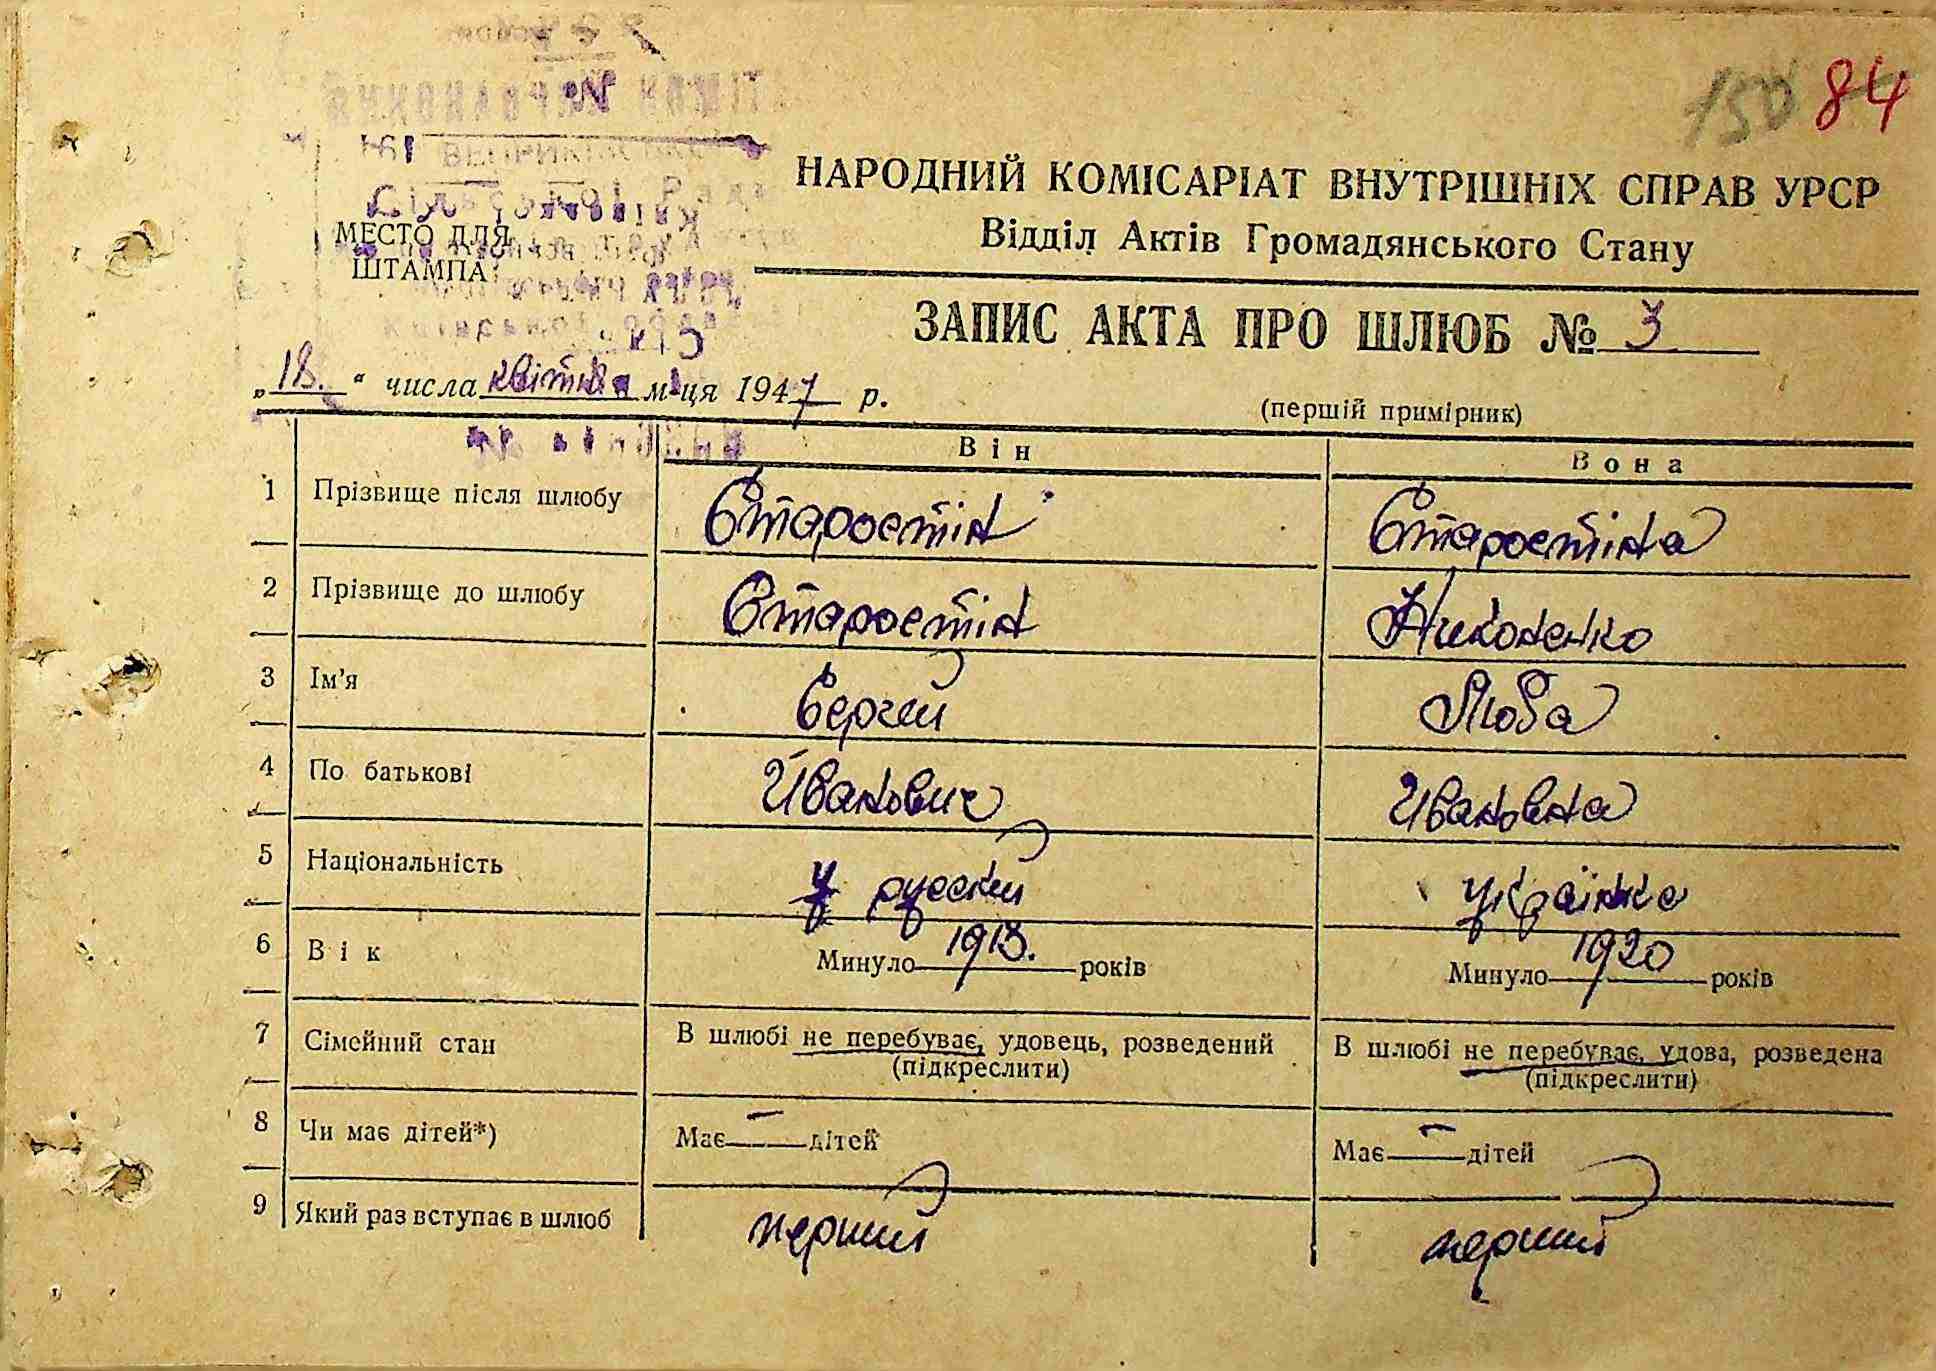 150 84
НАРОДНИЙ КОМІСАРІАТ ВНУТРІШНІХ СПРАВ УРСР
Відділ Актів Громадянського Стану
МЕСТО ДЛЯ
ШТАМПА
ЗАПИС АКТА ПРО ШЛЮБ № 3
„18.“ числа квітня м-ця 1947 р.
(першій примірник)
Він Вона
1 Прізвище після шлюбу Старостін Старостіна
2 Прізвище до шлюбу Старостін Никоненко
3 Ім’я Сергей Люба
4 По батькові Иванович Ивановна
5 Національність у русский українка
6 Вік Минуло 1918. років Минуло 1920 років
7 Сімейний стан В шлюбі не перебуває, удовець, розведений В шлюбі не перебуває, удова, розведена
(підкреслити) (підкреслити)
8 Чи має дітей*) Має — дітей Має — дітей
9 Який раз вступає в шлюб перший перший